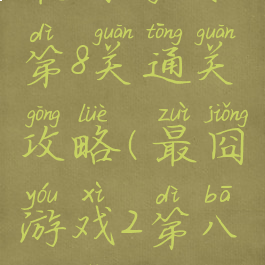 dì guān tōng guān
第8关通关
gōng lüè zuì jiǒng
攻略(最囧
yóu xì dì bā
游戏2第八